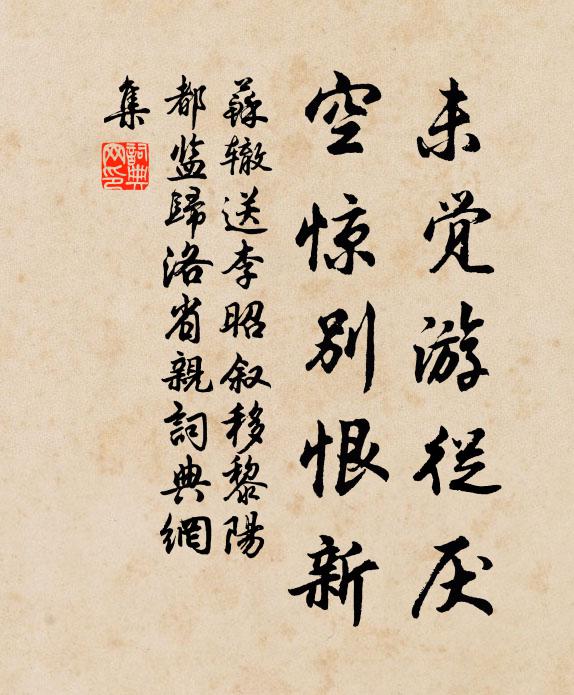 未觉游从厌
空惊别恨新
蘇辙送李昭叙移黎陽
都监歸洛省親詞典網
集
詞典網印